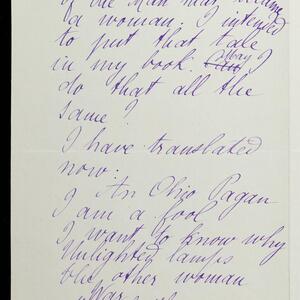 of the Man that became
a woman. I intended
to put that tale
in my book. May I
do that all the
same?
I have translated
now:
An Ohio Pagan
I am a fool
I want to know why
Unlighted lamps
the other woman
War